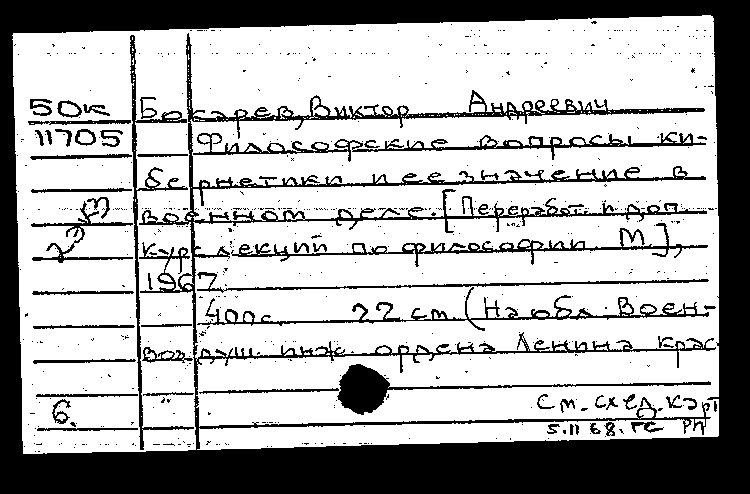 50к Бокарев, Виктор Андреевич
11705 Философские вопросы ки-
бернетики и ее значение в
военном деле. [Переработ. и доп.
курс лекций по философии М.],
1967
400с. 22 см. (На обл. Воен-
возд̶уш. инж. ордена Ленина крас
6. "
См. след. карт
5.11 68. ГС РП